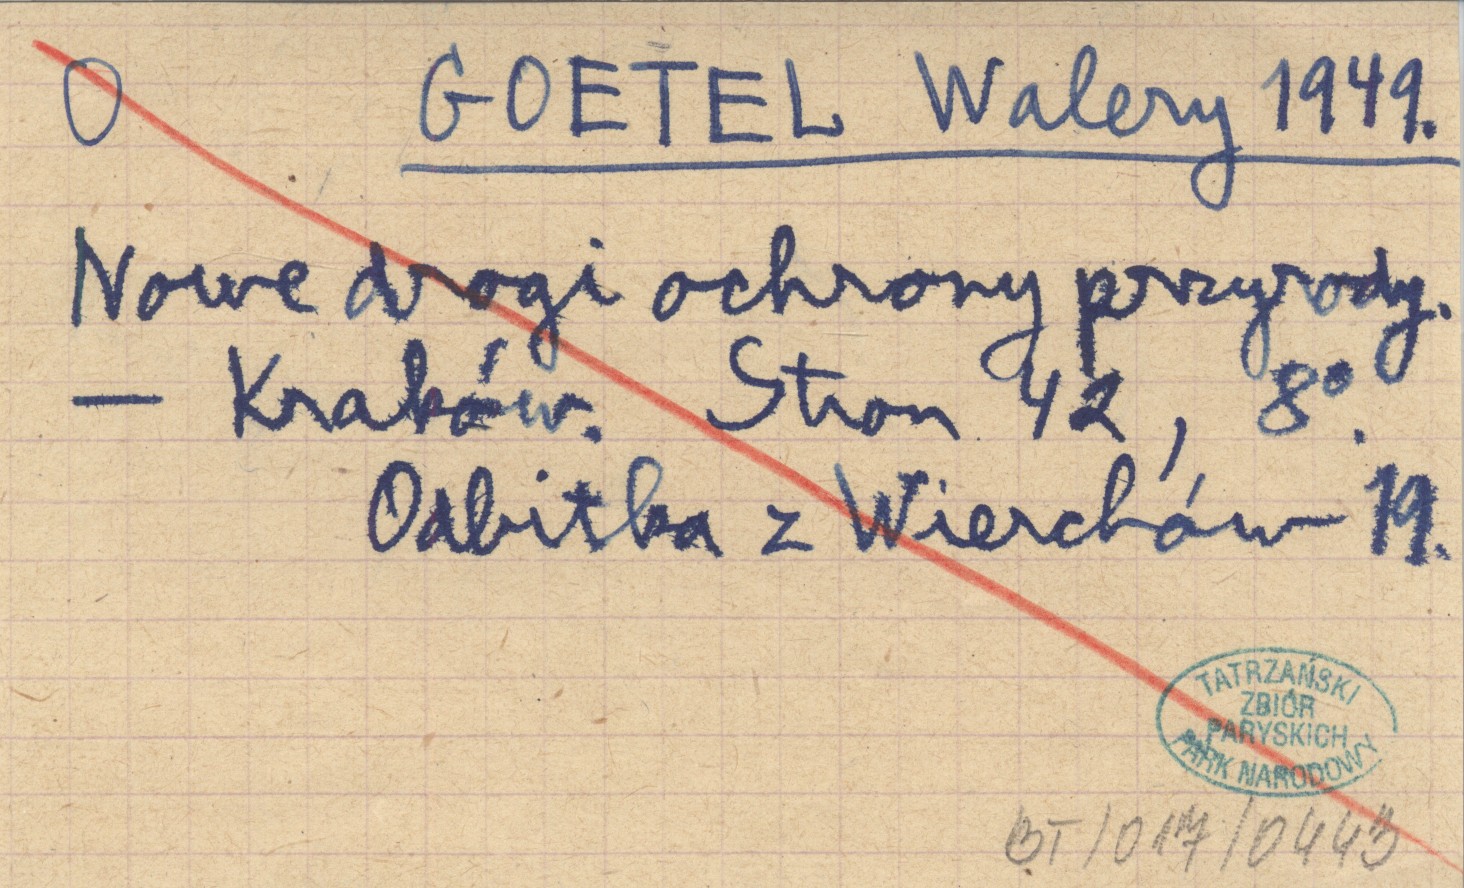 O GOETEL Walery 1949.
Nowe drogi ochrony przyrody.
— Kraków. Stron 42, 8°.
Odbitka z Wierchów 19.
TATRZAŃSKI
ZBIÓR
PARYSKICH
PARK NARODOWY
BT/017/0443